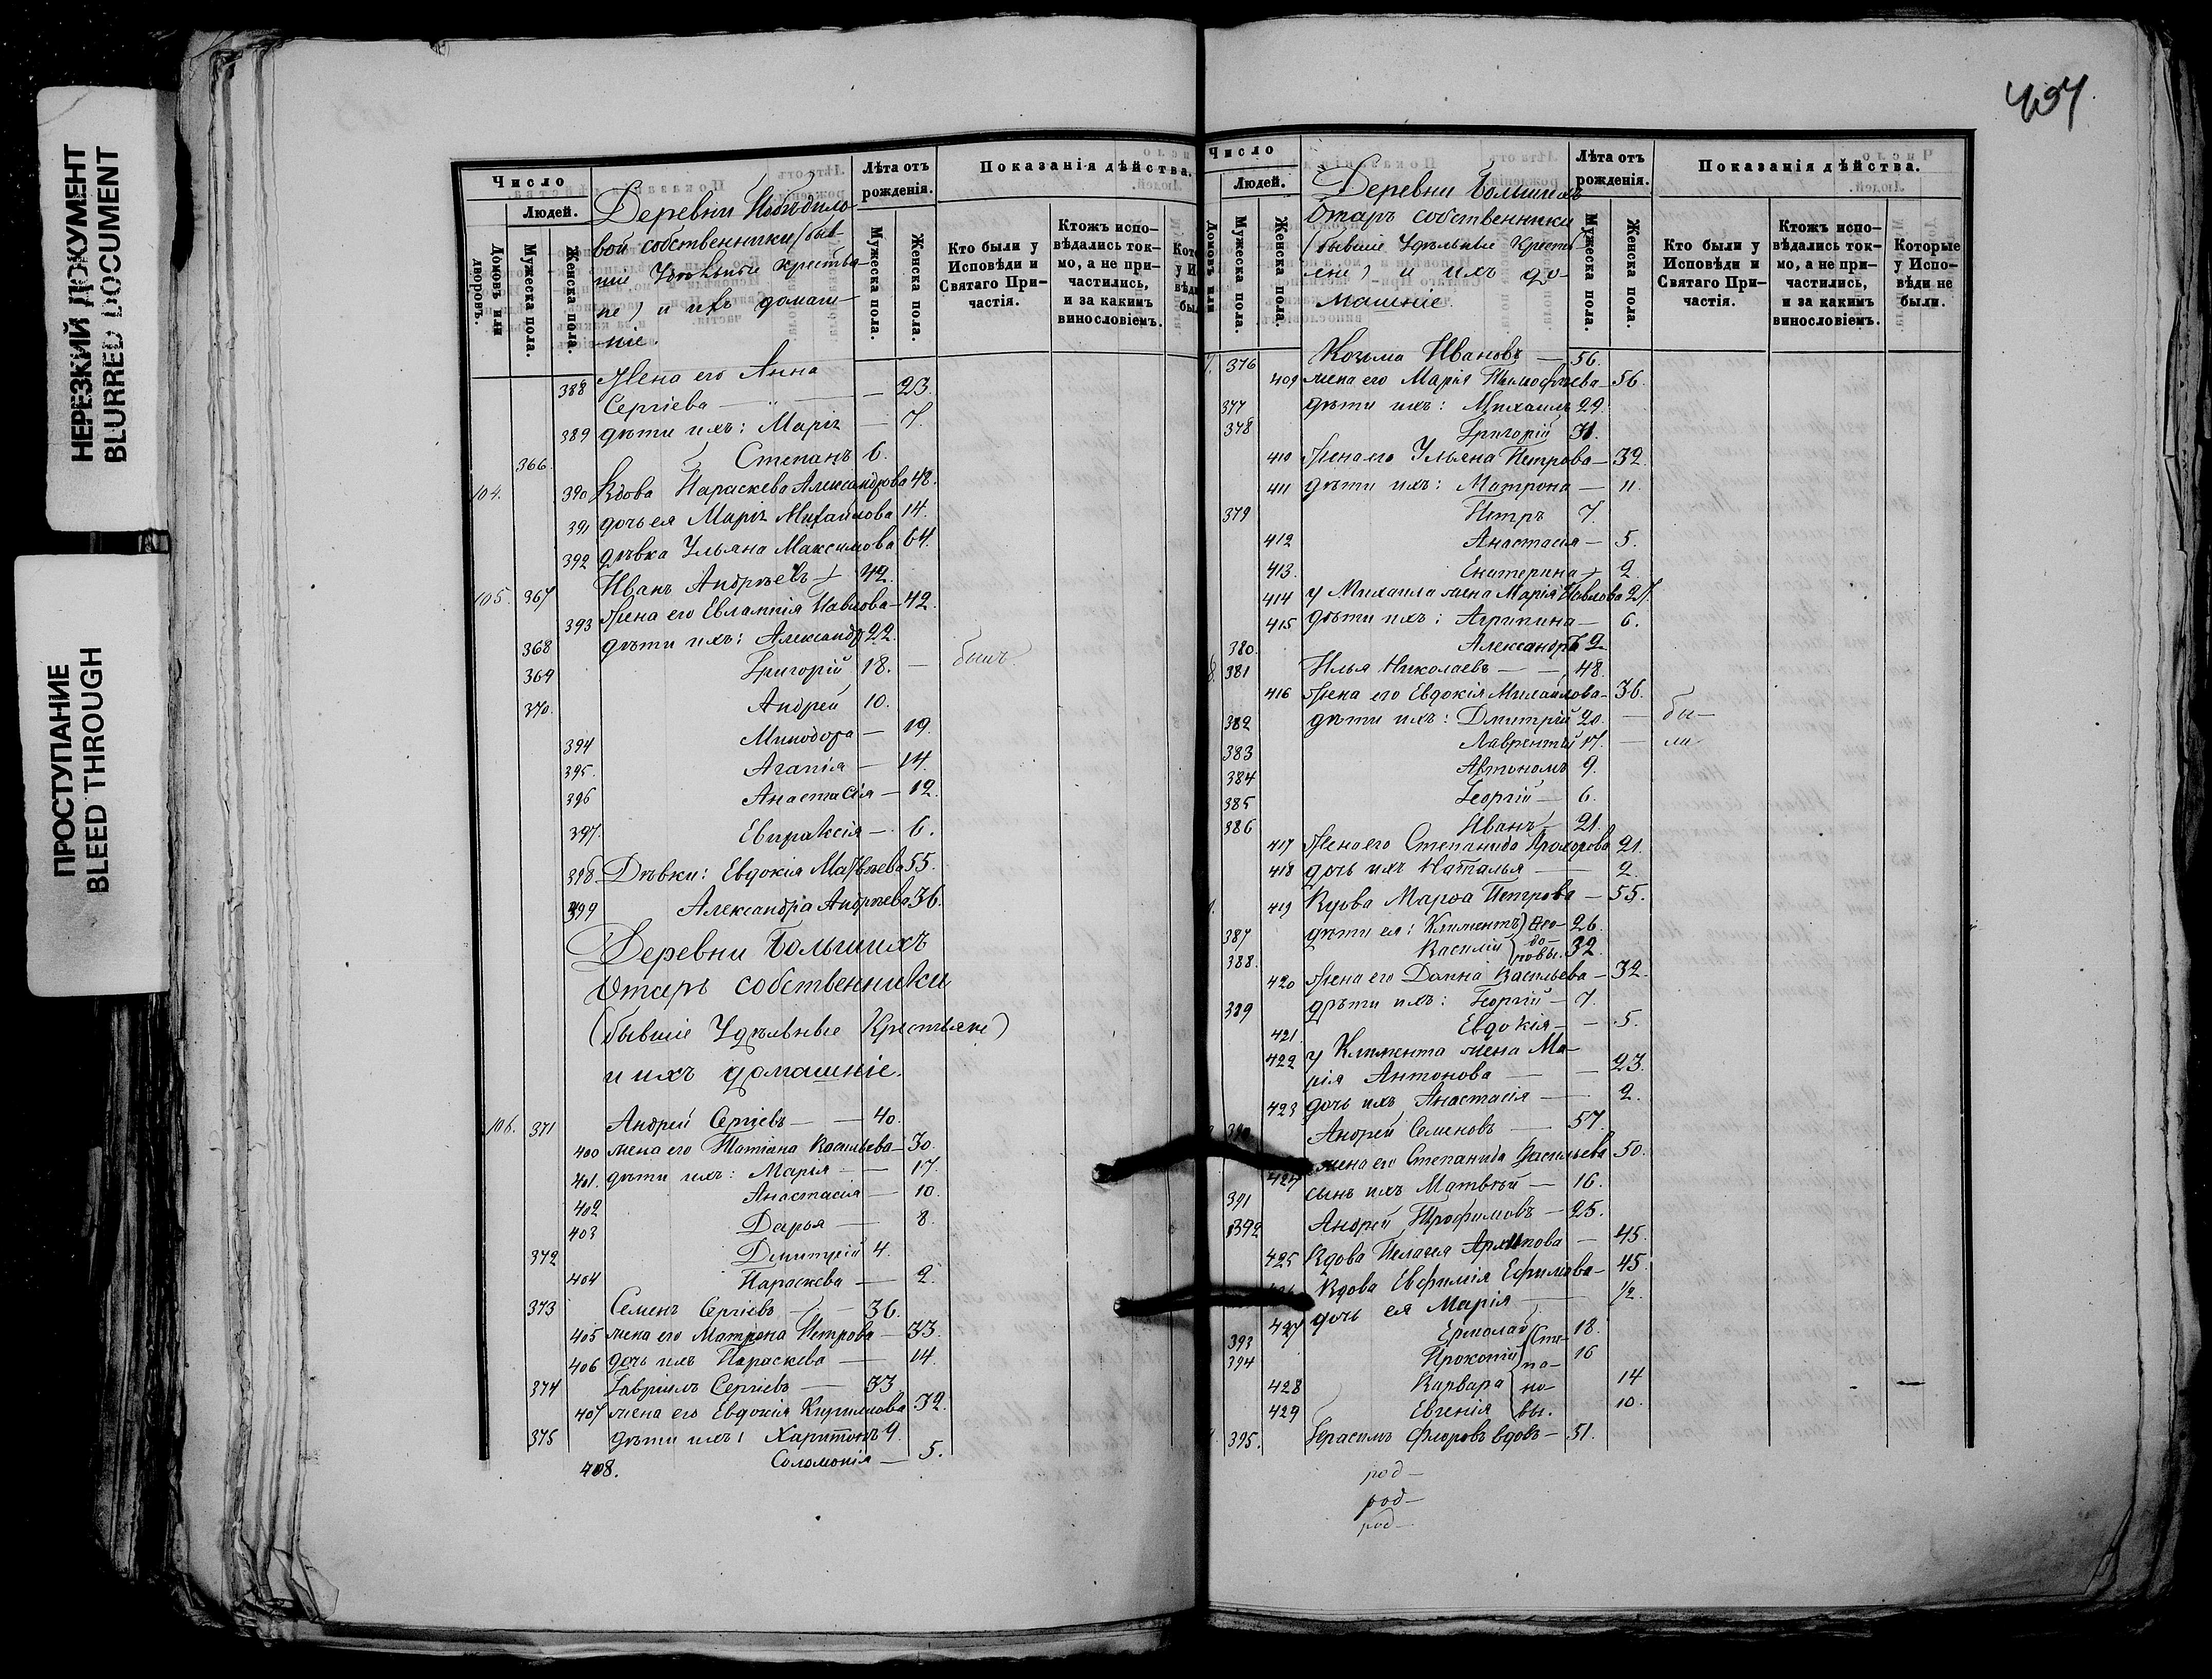 НЕРЕЗКИЙ ДОКУМЕНТ
BLURRED DOCUMENT
ПРОСТУПАНИЕ
BLEED THROUGH
Число
Людей.
Домовъ или дворовъ.
Мужеска пола.
Женска пола.
Деревни
вой собственники (быв-
шіе Удѣльные крестья-
не) и ихъ домаш-
ніе.
Лѣта отъ рожденія.
Мужеска пола.
Женска пола.
Показанія дѣйства.
Кто были у Исповѣди и Святаго При-частія.
Ктожъ испо-вѣдались ток-мо, а не при-частились, и за какимъ винословіемъ.
388 Жена его Анна
Сергіева — 23.
389 дѣти ихъ: Марія — 7.
366. Степанъ 6.
104. 390 Вдова Параскева Александрова 48.
391 дочь ея Марія Михайлова 14.
392 дѣвка Ульяна Максимова 64.
105. 367 Иванъ Андреевъ — 42.
393 Жена его Евлампія Павлова — 42.
368 дѣти ихъ: Александръ 22.
369 Григорій 18. — былъ
370. Андрей 10.
394 Минодора — 19.
395. Агапія — 14.
396 Анастасія — 12.
397. Евпраксія — 6.
398 Дѣвки: Евдокія Матвѣева 55.
399 Александра Андреева 36.
Деревни Большихъ
Отаръ собственники
(бывшіе Удѣльные Крестьяне)
и ихъ домашніе.
106. 371 Андрей Сергіевъ — 40.
400 жена его Татіана Васильева — 30.
401. дѣти ихъ: Марія — 17.
402 Анастасія — 10.
403 Дарья — 8.
372 Дмитрій 4.
404 Параскева — 2.
373 Семенъ Сергіевъ — 36.
405 жена его Матрона Петрова — 33.
406 дочь ихъ Параскева — 14.
374 Гавріилъ Сергіевъ — 33
407 жена его Евдокія Кириллова 32.
375 дѣти ихъ: Харитонъ 9.
408. Соломонія — 5.
Число
Людей.
Домовъ или
Мужеска пола.
Женска пола.
Деревни Большихъ
Отаръ собственники
(бывшіе Удѣльные Кресть-
яне) и ихъ до-
машніе.
Лѣта отъ рожденія.
Мужеска пола.
Женска пола.
Показанія дѣйства.
Кто были у Исповѣди и Святаго При-частія.
Ктожъ испо-вѣдались ток-мо, а не при-частились, и за какимъ винословіемъ.
Которые у Испо-вѣди не были.
7. 376 Козьма Ивановъ — 56.
409 жена его Марія Тимофѣева — 56.
377 дѣти ихъ: Михаилъ 29.
378 Григорій 31.
410 Жена его Ульяна Петрова — 32.
411 дѣти ихъ: Матрона — 11.
379 Петръ 7.
412 Анастасія — 5.
413. Екатерина — 2.
414 у Михаила жена Марія Павлова 27.
415 дѣти ихъ: Агрипина — 6.
380. Александръ 2.
8. 381 Илья Николаевъ — 48.
416 Жена его Евдокія Михайлова — 36.
382 дѣти ихъ: Дмитрій 20. — бы-
383 Лаврентій 17. — ли
384 Автономъ 9.
385 Георгій — 6.
386 Иванъ — 21.
417 Жена его Степанида Прохорова 21.
418 дочь ихъ Наталья — 2.
419 Вдова Марѳа Петрова — 55.
387 дѣти ея: Климентъ) Ѳео- 26.
388. Василій } до- ровы. 32.
420 Жена его Домна Васильева — 32.
389 дѣти ихъ: Георгій — 7.
421. Евдокія — 5.
422 у Климента жена Ма-
рія Антонова — 23.
423 дочь ихъ Анастасія — 2.
390 Андрей Семеновъ — 57.
424 жена его Степанида Васильева 50.
391 сынъ ихъ Матвѣй — 16.
392 Андрей Трофимовъ — 25.
425 Вдова Пелагея — 45.
Вдова Евфимія Ефимова — 45.
427 дочь ея Марія — 1/2.
393 Ермолай (Сте- 18.
394 Прокопій) па- 16
428 Варвара } но- 14
429 Евгенія (вы. 10.
395. Герасимъ Флоровъ вдовъ — 51.
род —
род —
род —